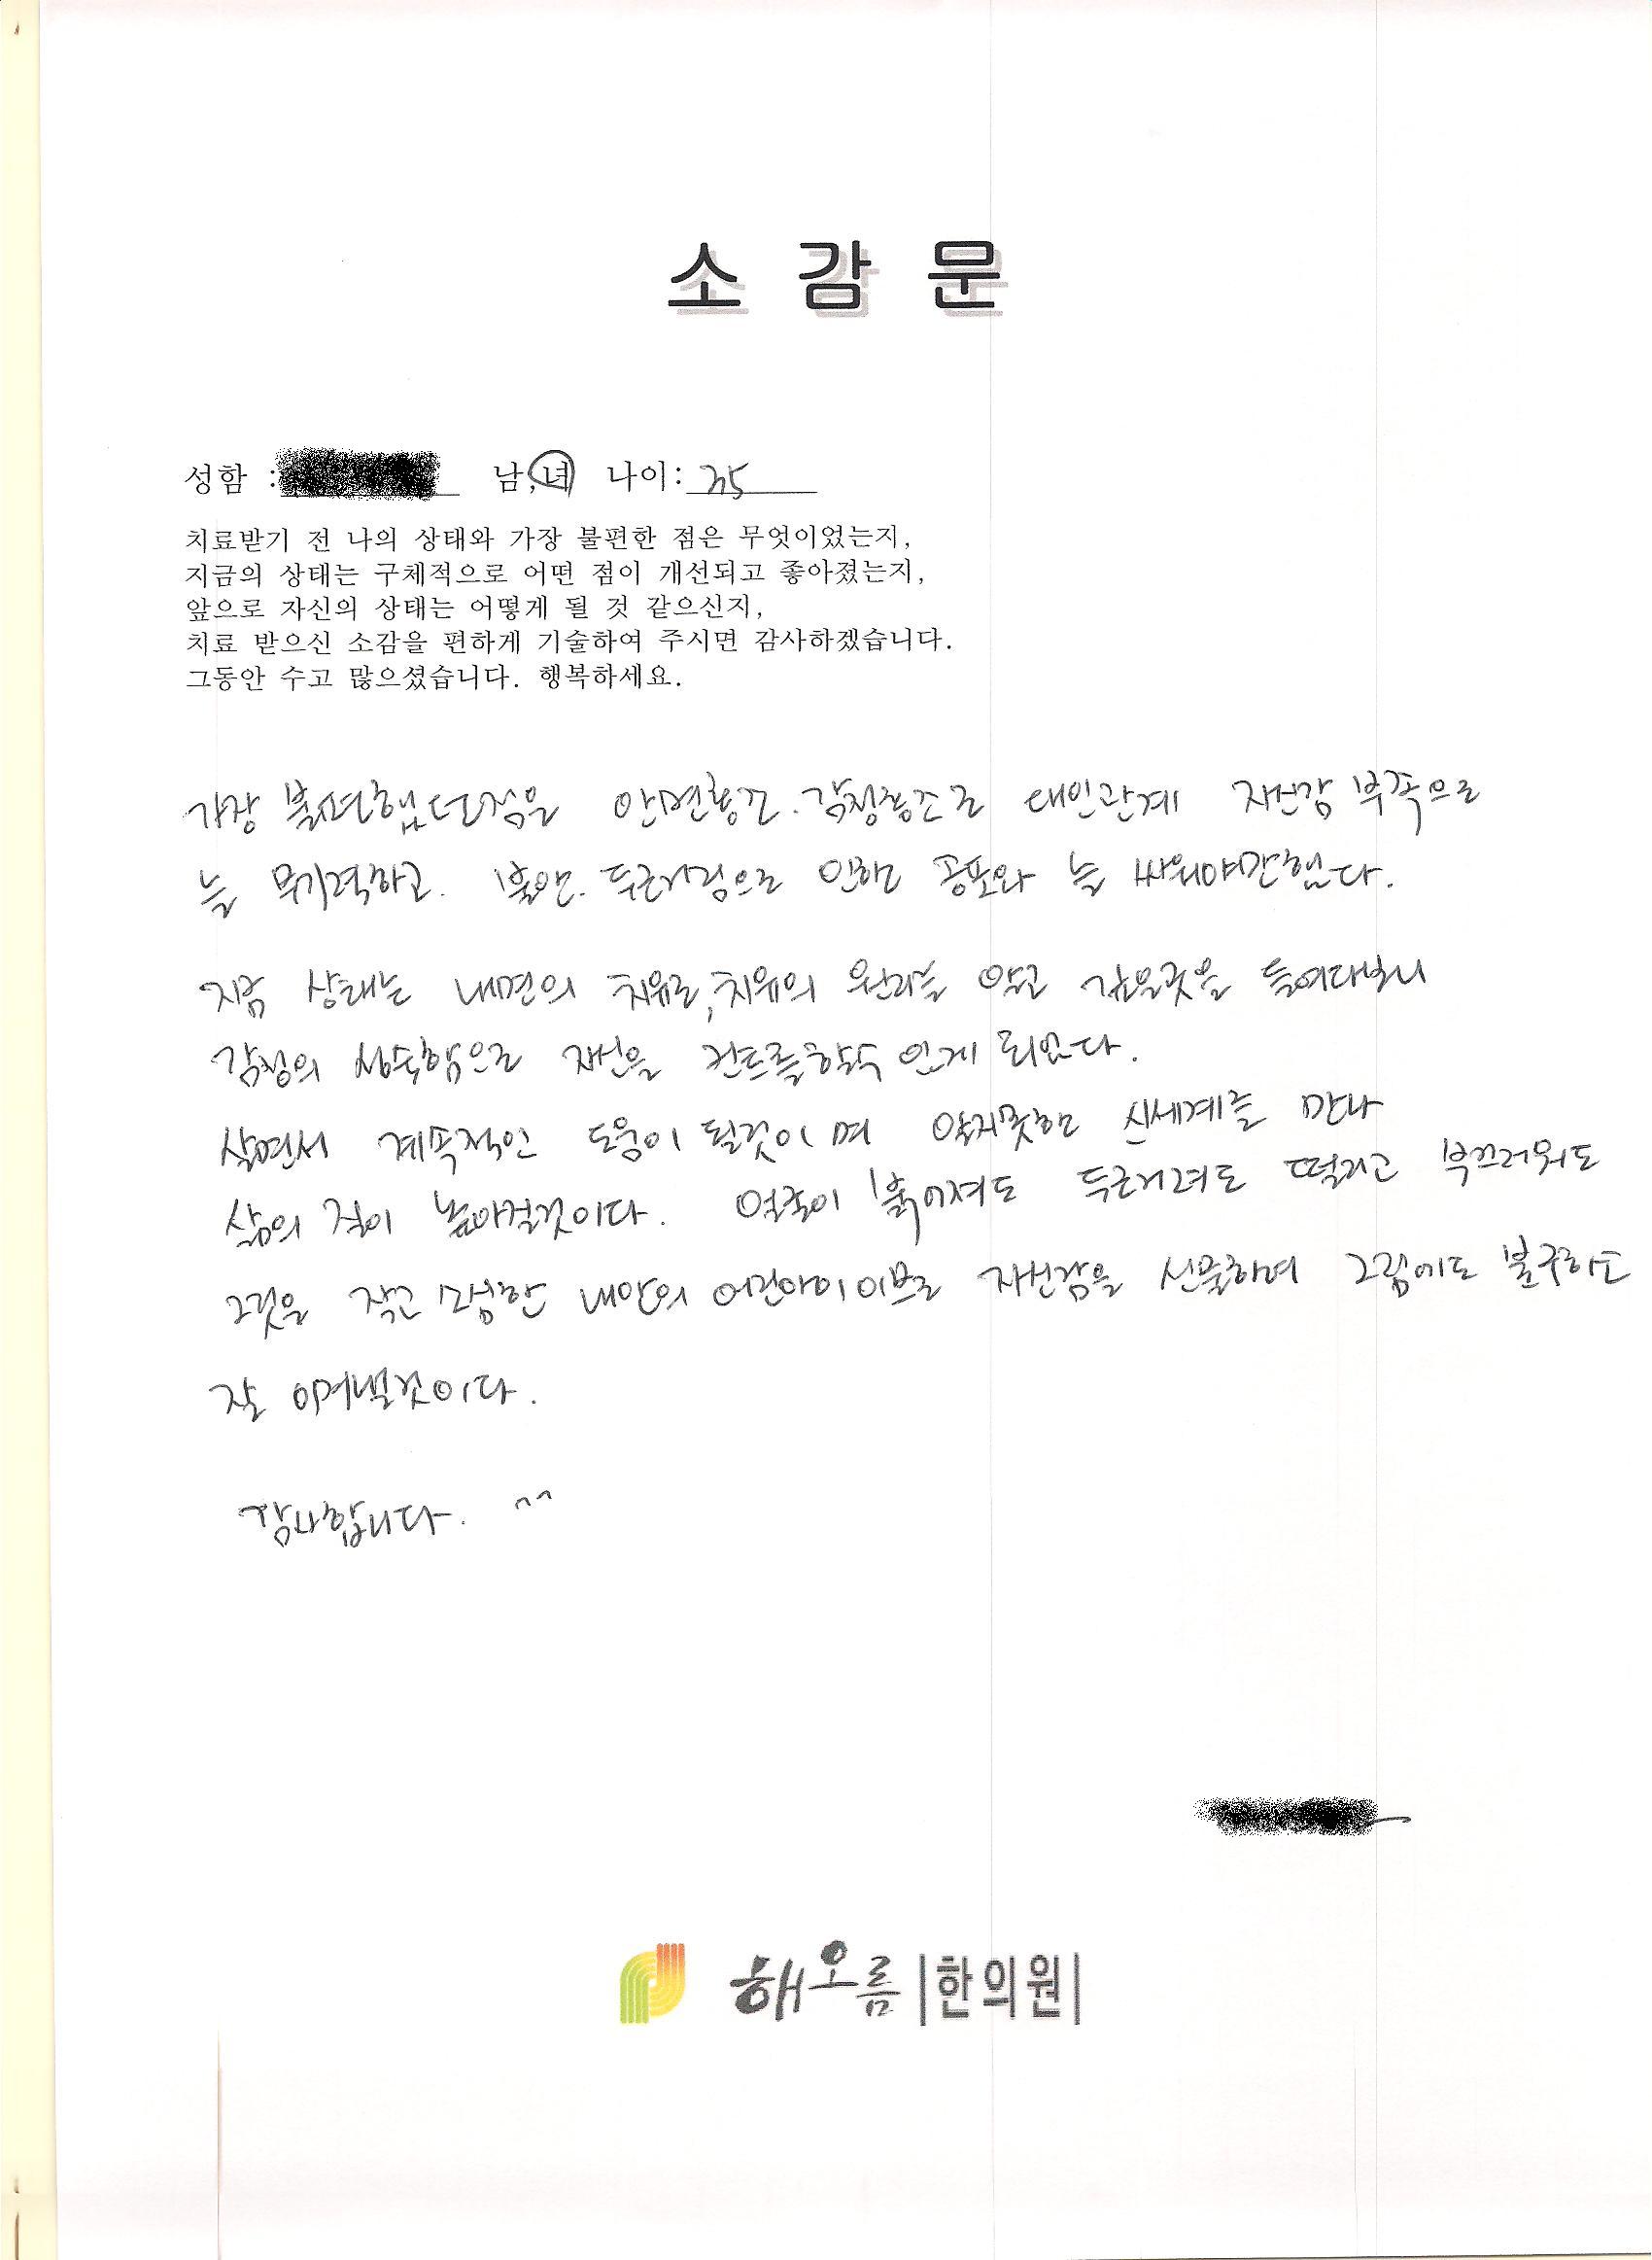 소 감 문
성함 : 남,녀 나이: 35
치료받기 전 나의 상태와 가장 불편한 점은 무엇이었는지,
지금의 상태는 구체적으로 어떤 점이 개선되고 좋아졌는지,
앞으로 자신의 상태는 어떻게 될 것 같으신지,
치료 받으신 소감을 편하게 기술하여 주시면 감사하겠습니다.
그동안 수고 많으셨습니다. 행복하세요.
가장 불편했던점은 안면홍조. 감정홍조로 대인관계 자신감 부족으로
늘 무기력하고. 불안. 두근거림으로 인한 공포와 늘 싸워야만했다.
지금 상태는 내면의 치유로, 치유의 원리를 알고 깊은곳을 들여다보니
감정의 성숙함으로 자신을 컨트롤할수 있게 되었다.
살면서 계속적인 도움이 될것이며 알지못한 신세계를 만나
삶의 질이 높아질것이다. 얼굴이 붉어져도 두근거려도 떨리고 부끄러워도
그것을 작고 소심한 내안의 어린아이 이쁘로 자신감을 선물하여 그럼에도 불구하고
잘 이겨낼것이다.
감사합니다. ^^
해오름 |한의원|